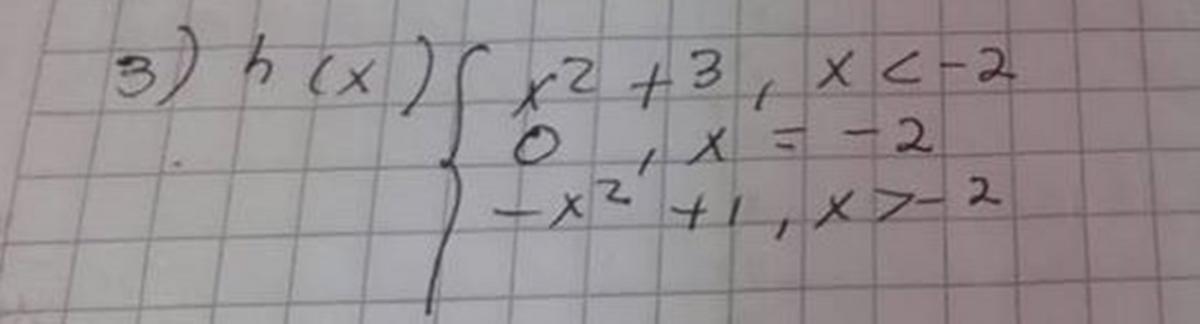 3) h (x) { x² + 3 , x < -2
0 , x = -2
-x² + 1 , x > -2